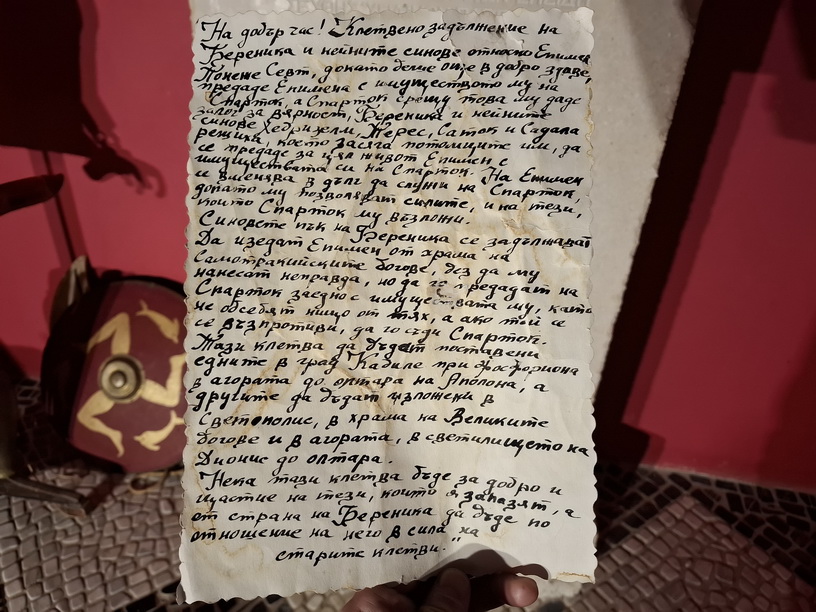 "На добър час! Клетвено задължение на
Береника и нейните синове относно Епимен
Понеже Севт, докато беше още в добро здраве,
предаде Епимена с имуществото му на
Спарток, а Спарток срещу това му даде
залог за вярност, Береника и нейните
синове Хедрихелм, Терес, Саток и Садала
решиха, което засяга потомците им, да
се предаде за цял живот Епимен с
имуществата си на Спарток. На Епимен
и вменява в дълг да служи на Спарток,
докато му позволяват силите, и на тези,
които Спарток му възложи.
Синовете пък на Береника се задължават
Да изведат Епимен от храма на
Самотракийските богове, без да му
нанесат неправда, но да го предадат на
Спарток заедно с имуществата му, като
не отсебят нищо от тях, а ако той се
се възпротиви, да го съди Спарток.
Тази клетва да бъдат поставени
едните в град Кабиле при фосфориона
в агората до олтара на Аполона, а
другите да бъдат изложени в
Светополис, в храма на Великите
богове и в агората, в светилището на
Дионис до олтара.
Нека тази клетва бъде за добро и
щастие на тези, които я запазят, а
от страна на Береника да бъде по
отношение на него в сила на
старите клетви."